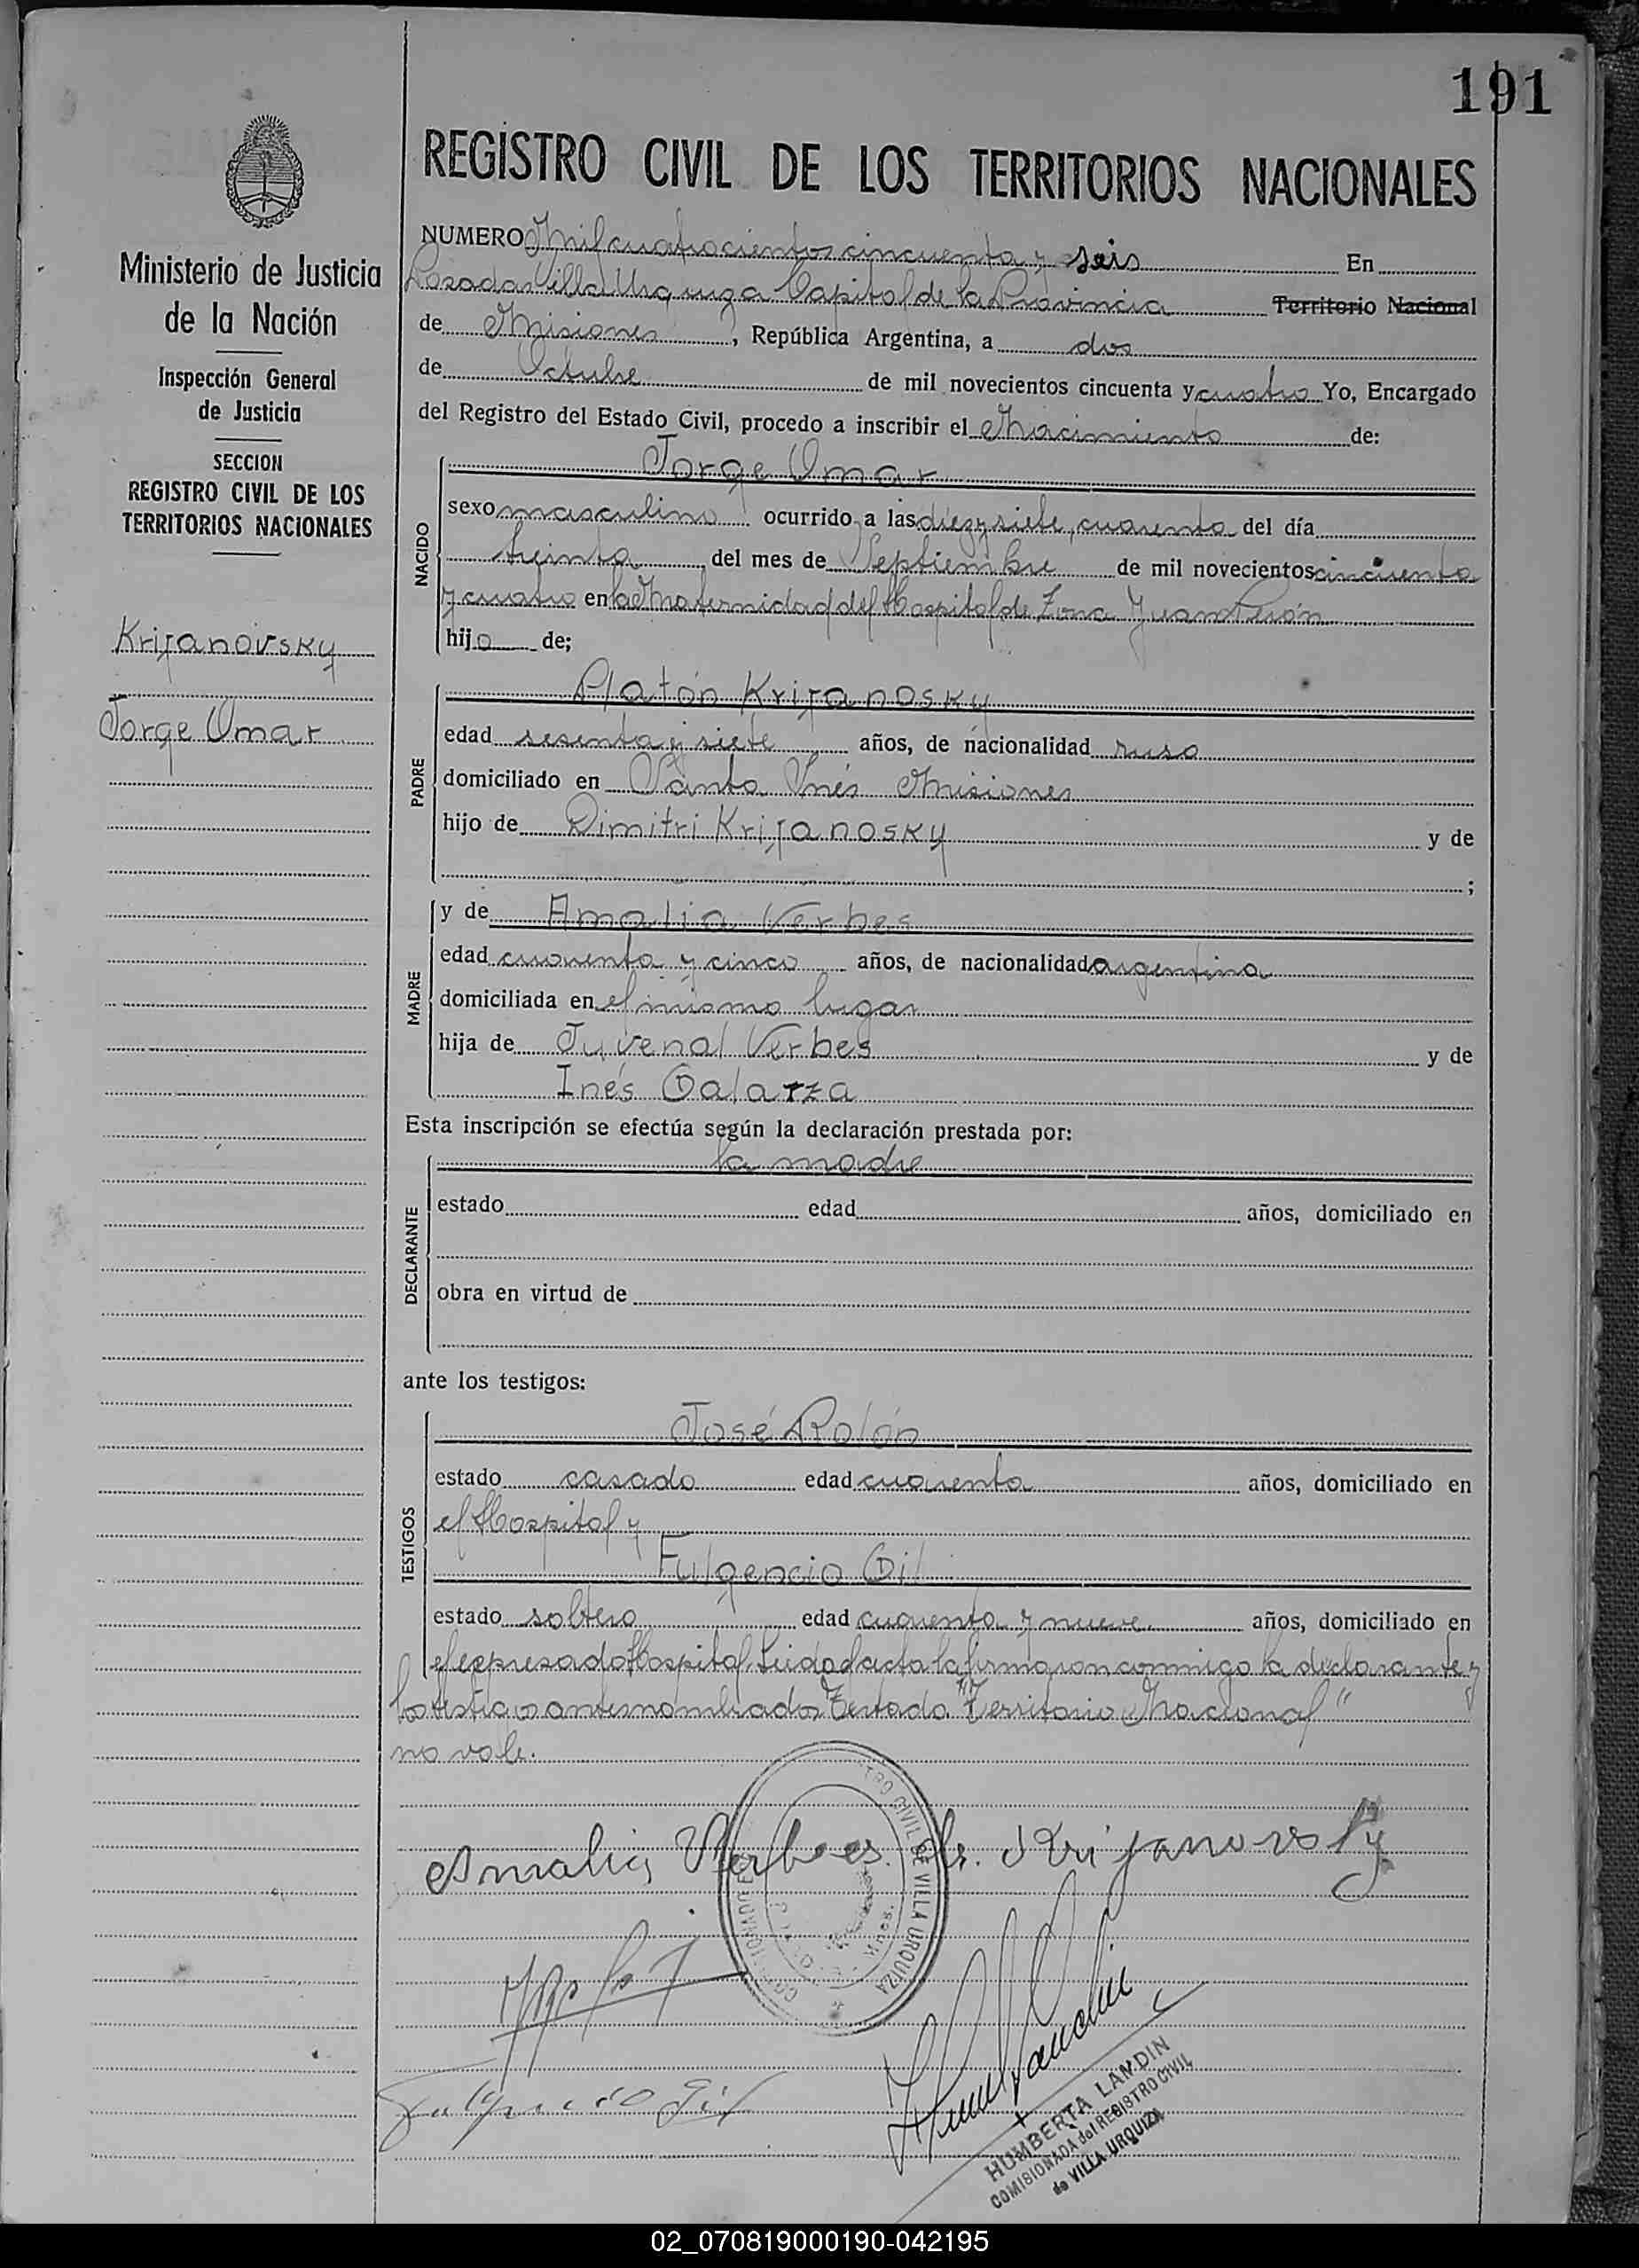 191
Ministerio de Justicia
de la Nación
Inspección General
de Justicia
SECCION
REGISTRO CIVIL DE LOS
TERRITORIOS NACIONALES
Krijanovsky
Jorge Omar
REGISTRO CIVIL DE LOS TERRITORIOS NACIONALES
NUMERO Mil cuatrocientos cincuenta y seis En
Posadas Villa Urquiza Capital de la Provincia Territorio Nacional
de Misiones, República Argentina, a dos
de Octubre de mil novecientos cincuenta y cuatro Yo, Encargado
del Registro del Estado Civil, procedo a inscribir el Nacimiento de:
NACIDO
Jorge Omar
sexo masculino ocurrido a las diez y siete, cuarenta del día
treinta del mes de Septiembre de mil novecientos cincuenta
y cuatro en la Maternidad del Hospital de Zona Juan Perón
hijo de;
PADRE
Platón Krijanosky
edad sesenta y siete años, de nacionalidad ruso
domiciliado en Santa Inés Misiones
hijo de Dimitri Krijanosky y de
;
MADRE
y de Amalia Verbes
edad cuarenta y cinco años, de nacionalidad argentina
domiciliada en el mismo lugar
hija de Juvenal Verbes y de
Inés Galarza
Esta inscripción se efectúa según la declaración prestada por:
DECLARANTE
la madre
estado edad años, domiciliado en
obra en virtud de
ante los testigos:
TESTIGOS
José Rolón
estado casado edad cuarenta años, domiciliado en
el Hospital y
Fulgencio Gil
estado soltero edad cuarenta y nueve años, domiciliado en
el expresado Hospital. Leida el acta la firmaron conmigo la declarante y
los testigos antes nombrados Testado "Territorio Nacional"
no vale.
Amalia Verbes de Krijanovsky
CIVIL DE VILLA URQUIZA
Fulgencio Gil
HUMBERTA LANDIN
COMISIONADA del REGISTRO CIVIL
de VILLA URQUIZA
02_070819000190-042195